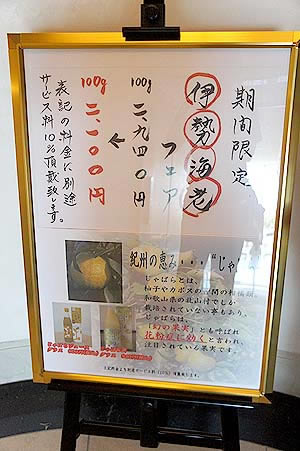 期間限定
伊勢海老
フェア
100g 二、九四〇円
←
100g 二、一〇〇円
表記の料金に別途
サービス料10%頂戴致します。
紀州の恵み・・・“じゃ
じゃばらとは、
柚子やカボスの仲間の柑橘類。
和歌山県の北山村でしか
栽培されていない事もあり、
じゃばらは、
「幻の果実」とも呼ばれ
花粉症に効くと言われ、
注目されている果実です。